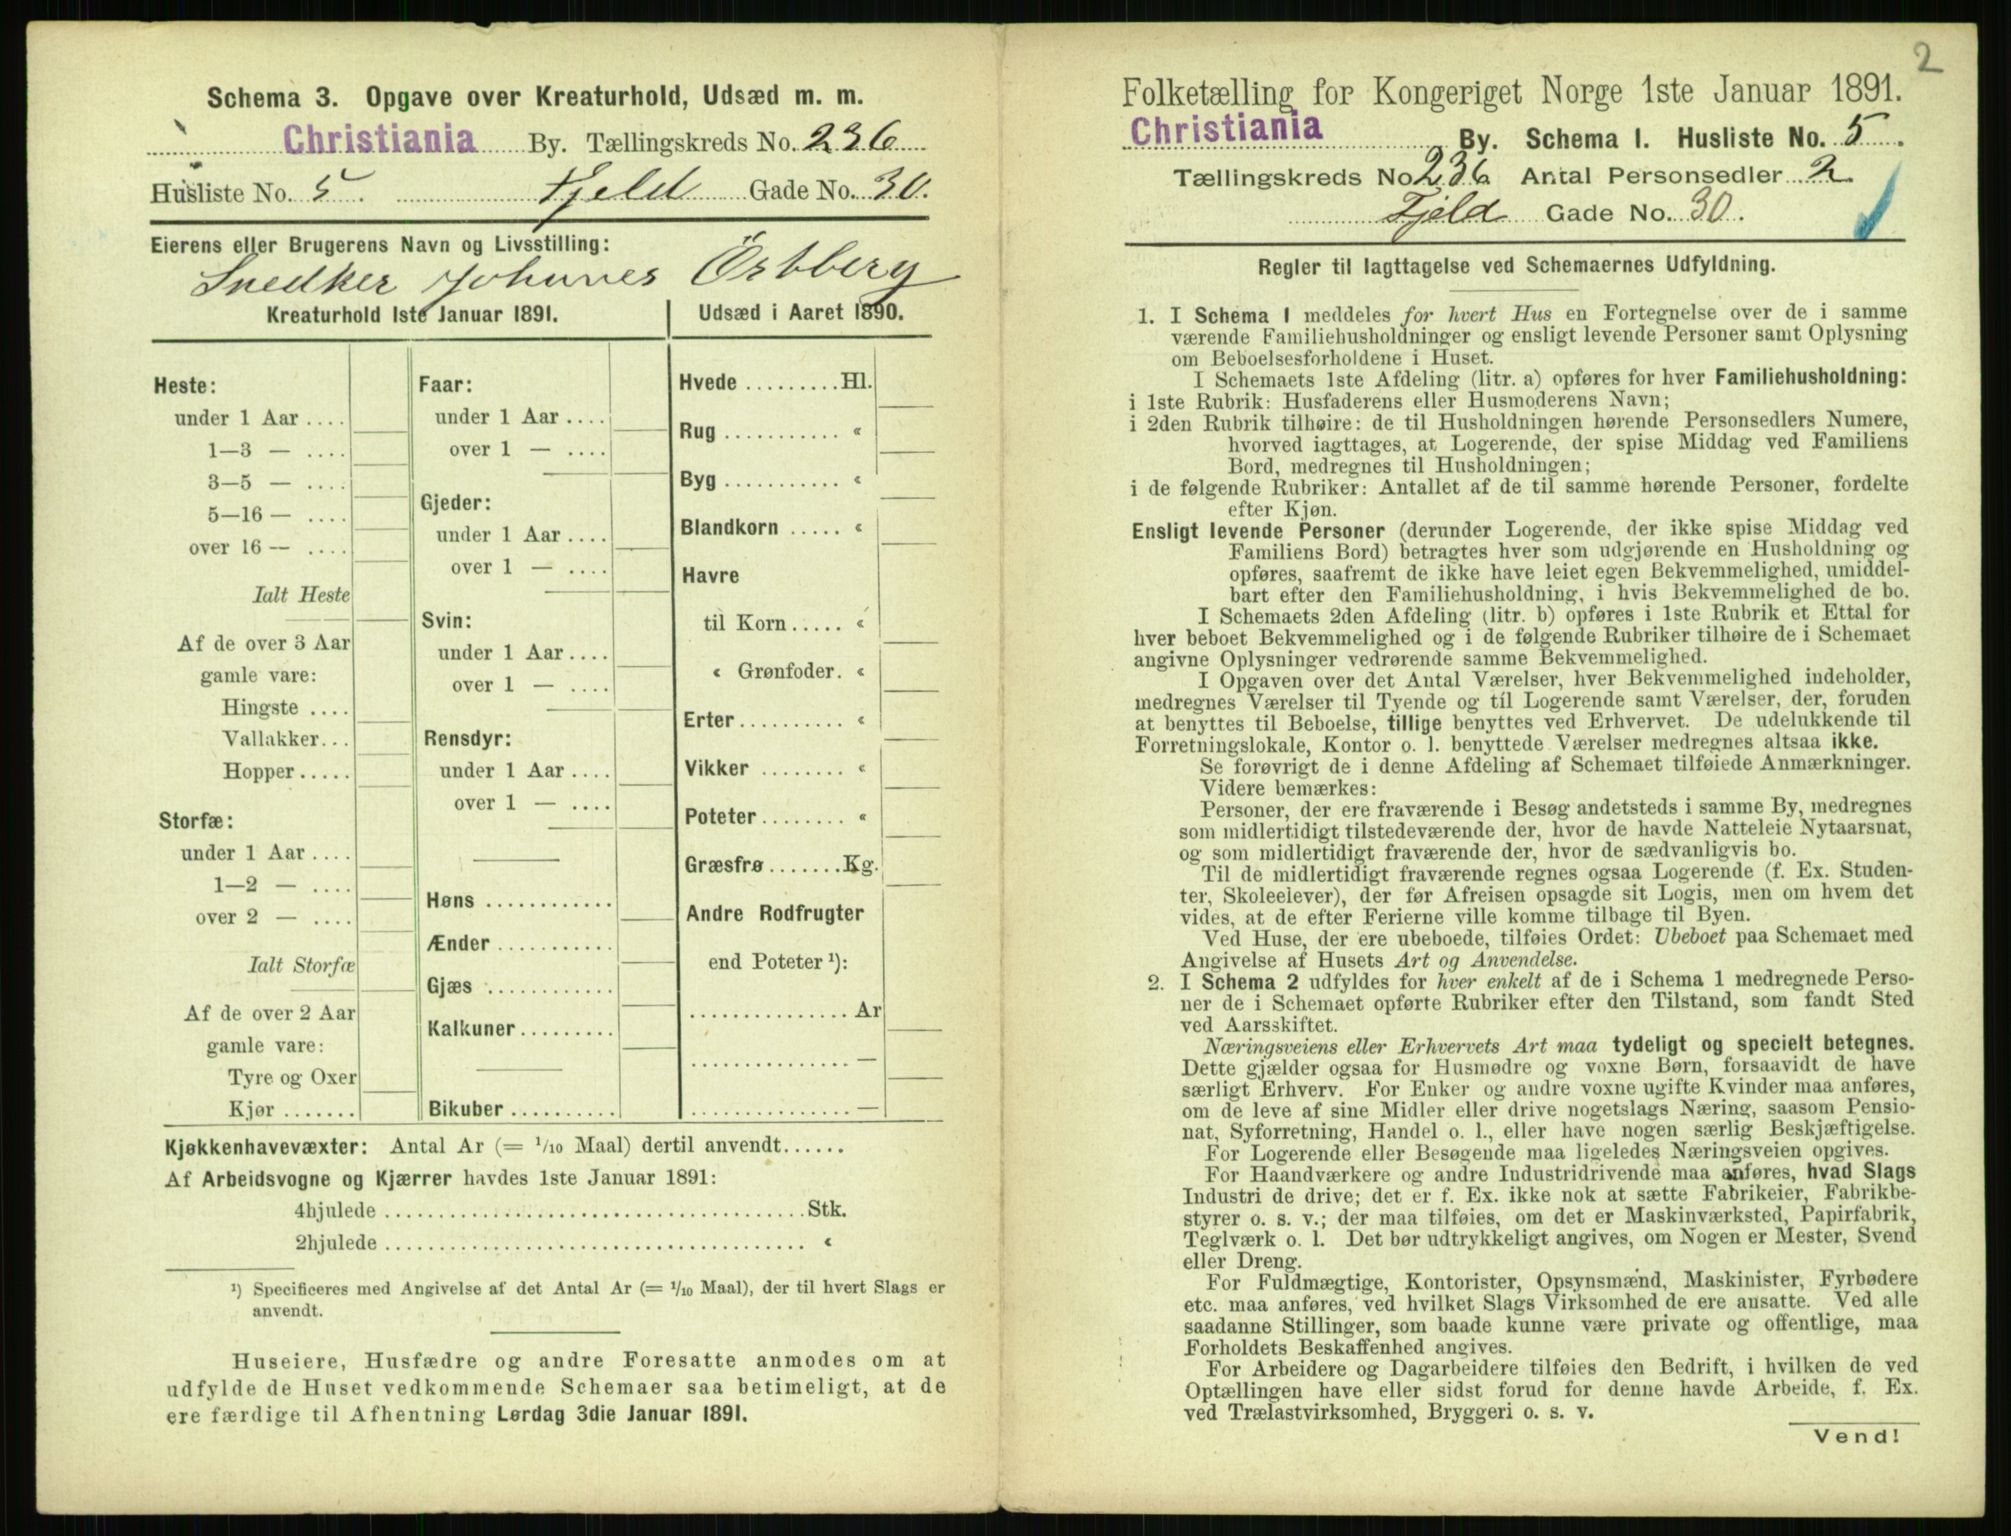 Schema 3. Opgave over Kreaturhold, Udsæd m. m.
Christiania By. Tællingskreds No. 236
Husliste No. 5. Fjeld Gade No. 30.
Eierens eller Brugerens Navn og Livsstilling:
Snedker Johannes Östberg
Kreaturhold 1ste Januar 1891.
Heste:
under 1 Aar ....
1—3 — ....
3—5 — ....
5—16 — ....
over 16 — ....
Ialt Heste
Af de over 3 Aar
gamle vare:
Hingste ....
Vallakker...
Hopper.....
Storfæ:
under 1 Aar ....
1—2 — ....
over 2 — ....
Ialt Storfæ
Af de over 2 Aar
gamle vare:
Tyre og Oxer
Kjør .......
Faar:
under 1 Aar ....
over 1 — ....
Gjeder:
under 1 Aar ....
over 1 — ....
Svin:
under 1 Aar ....
over 1 — ....
Rensdyr:
under 1 Aar ....
over 1 — ....
Høns ............
Ænder ...........
Gjæs ............
Kalkuner.........
Bikuber..........
Udsæd i Aaret 1890.
Hvede .........Hl.
Rug ........... «
Byg ........... «
Blandkorn ..... «
Havre
til Korn..... «
« Grønfoder. «
Erter.......... «
Vikker ........ «
Poteter........ «
Græsfrø.......Kg.
Andre Rodfrugter
end Poteter ¹):
............... Ar
............... —
............... —
Kjøkkenhavevæxter: Antal Ar (= 1/10 Maal) dertil anvendt......
Af Arbeidsvogne og Kjærrer havdes 1ste Januar 1891:
4hjulede ........................................Stk.
2hjulede ........................................ «
¹) Specificeres med Angivelse af det Antal Ar (= 1/10 Maal), der til hvert Slags er
anvendt.
Huseiere, Husfædre og andre Foresatte anmodes om at
udfylde de Huset vedkommende Schemaer saa betimeligt, at de
ere færdige til Afhentning Lørdag 3die Januar 1891.
2
Folketælling for Kongeriget Norge 1ste Januar 1891.
Christiania By. Schema 1. Husliste No. 5.
Tællingskreds No. 236 Antal Personsedler 2
Fjeld Gade No. 30.
Regler til Iagttagelse ved Schemaernes Udfyldning.
1. I Schema 1 meddeles for hvert Hus en Fortegnelse over de i samme
værende Familiehusholdninger og ensligt levende Personer samt Oplysning
om Beboelsesforholdene i Huset.
I Schemaets 1ste Afdeling (litr. a) opføres for hver Familiehusholdning:
i 1ste Rubrik: Husfaderens eller Husmoderens Navn;
i 2den Rubrik tilhøire: de til Husholdningen hørende Personsedlers Numere,
hvorved iagttages, at Logerende, der spise Middag ved Familiens
Bord, medregnes til Husholdningen;
i de følgende Rubriker: Antallet af de til samme hørende Personer, fordelte
efter Kjøn.
Ensligt levende Personer (derunder Logerende, der ikke spise Middag ved
Familiens Bord) betragtes hver som udgjørende en Husholdning og
opføres, saafremt de ikke have leiet egen Bekvemmelighed, umiddel-
bart efter den Familiehusholdning, i hvis Bekvemmelighed de bo.
I Schemaets 2den Afdeling (litr. b) opføres i 1ste Rubrik et Ettal for
hver beboet Bekvemmelighed og i de følgende Rubriker tilhøire de i Schemaet
angivne Oplysninger vedrørende samme Bekvemmelighed.
I Opgaven over det Antal Værelser, hver Bekvemmelighed indeholder,
medregnes Værelser til Tyende og til Logerende samt Værelser, der, foruden
at benyttes til Beboelse, tillige benyttes ved Erhvervet. De udelukkende til
Forretningslokale, Kontor o. l. benyttede Værelser medregnes altsaa ikke.
Se forøvrigt de i denne Afdeling af Schemaet tilføiede Anmærkninger.
Videre bemærkes:
Personer, der ere fraværende i Besøg andetsteds i samme By, medregnes
som midlertidigt tilstedeværende der, hvor de havde Natteleie Nytaarsnat,
og som midlertidigt fraværende der, hvor de sædvanligvis bo.
Til de midlertidigt fraværende regnes ogsaa Logerende (f. Ex. Studen-
ter, Skoleelever), der før Afreisen opsagde sit Logis, men om hvem det
vides, at de efter Ferierne ville komme tilbage til Byen.
Ved Huse, der ere ubeboede, tilføies Ordet: Ubeboet paa Schemaet med
Angivelse af Husets Art og Anvendelse.
2. I Schema 2 udfyldes for hver enkelt af de i Schema 1 medregnede Perso-
ner de i Schemaet opførte Rubriker efter den Tilstand, som fandt Sted
ved Aarsskiftet.
Næringsveiens eller Erhvervets Art maa tydeligt og specielt betegnes.
Dette gjælder ogsaa for Husmødre og voxne Børn, forsaavidt de have
særligt Erhverv. For Enker og andre voxne ugifte Kvinder maa anføres,
om de leve af sine Midler eller drive nogetslags Næring, saasom Pensio-
nat, Syforretning, Handel o. l., eller have nogen særlig Beskjæftigelse.
For Logerende eller Besøgende maa ligeledes Næringsveien opgives.
For Haandværkere og andre Industridrivende maa anføres, hvad Slags
Industri de drive; det er f. Ex. ikke nok at sætte Fabrikeier, Fabrikbe-
styrer o. s. v.; der maa tilføies, om det er Maskinværksted, Papirfabrik,
Teglværk o. l. Det bør udtrykkeligt angives, om Nogen er Mester, Svend
eller Dreng.
For Fuldmægtige, Kontorister, Opsynsmænd, Maskinister, Fyrbødere
etc. maa anføres, ved hvilket Slags Virksomhed de ere ansatte. Ved alle
saadanne Stillinger, som baade kunne være private og offentlige, maa
Forholdets Beskaffenhed angives.
For Arbeidere og Dagarbeidere tilføies den Bedrift, i hvilken de ved
Optællingen have eller sidst forud for denne havde Arbeide, f. Ex.
ved Trælastvirksomhed, Bryggeri o. s. v.
Vend!